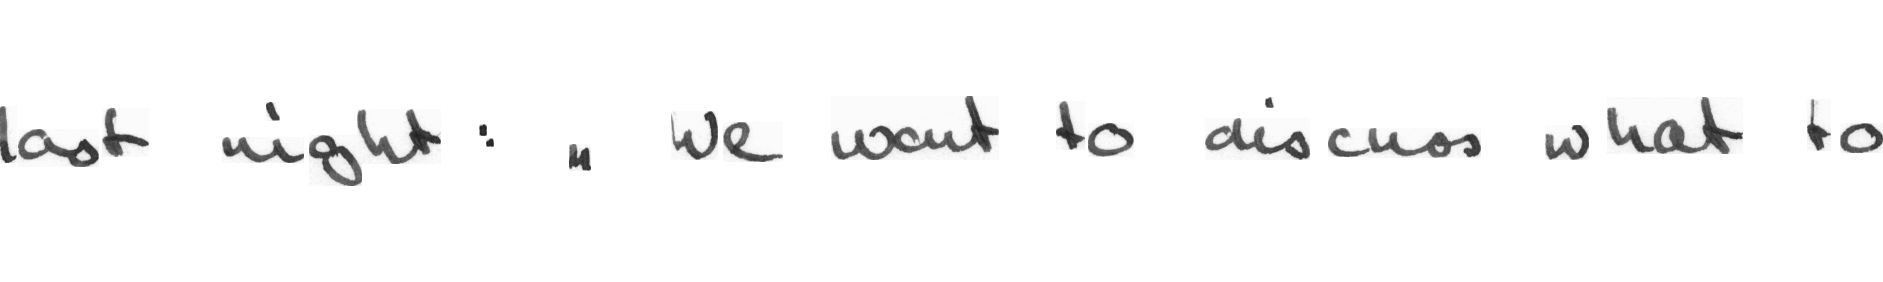 last night : „ We want to discuss what to